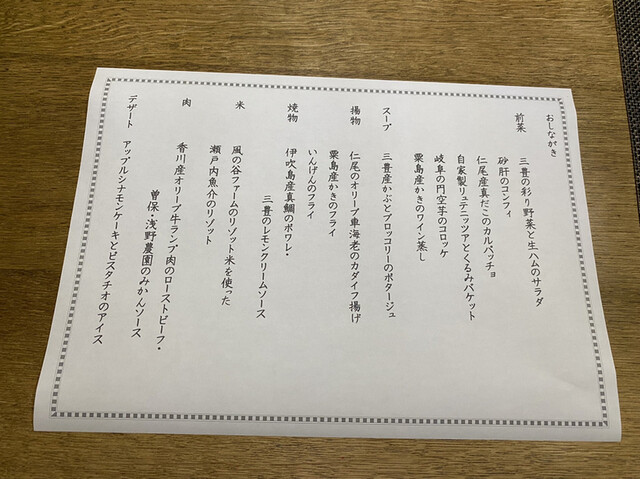 おしながき
前菜
三豊の彩り野菜と生ハムのサラダ
砂肝のコンフィ
仁尾産真だこのカルパッチョ
自家製リュテニッツァとくるみバケット
岐阜の円空芋のコロッケ
粟島産かきのワイン蒸し
スープ
三豊産かぶとブロッコリーのポタージュ
揚物
仁尾のオリーブ車海老のカダイフ揚げ
粟島産かきのフライ
いんげんのフライ
焼物
伊吹島産真鯛のポワレ・
三豊のレモンクリームソース
米
風の谷ファームのリゾット米を使った
瀬戸内魚介のリゾット
肉
香川産オリーブ牛ランプ肉のローストビーフ・
曽保・浅野農園のみかんソース
デザート
アップルシナモンケーキとピスタチオのアイス